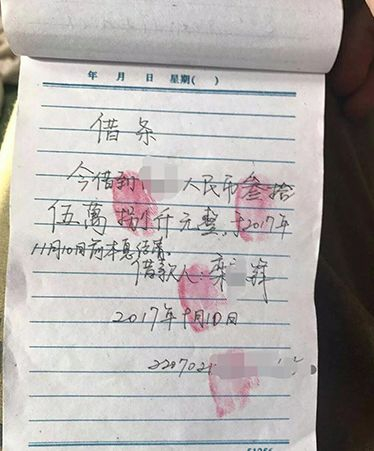 年 月 日 星期( )
借条
今借到 人民币叁拾
伍萬 仟元整,于2017年
11月10日前本息结清。
借款人:栾
2017年 月10日
2207021